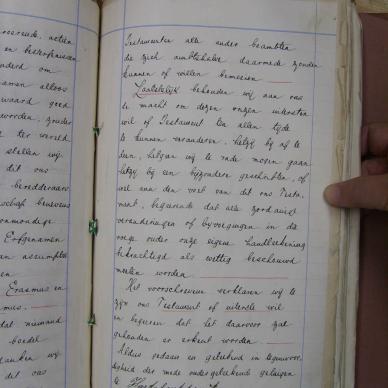 roerende, actien
en
om
allees
waard goed
worden, zonder
ter wereld
stellen wij
dit ons
beredderaars
onmondige
Erfgenamen
van assumptie
en
Erasmus en
mus.
dat niemand
boedel
danken wij
dit ons
Testamenten alle ander beambten
die zich ambtshalve daarmede zouden
kunnen of willen bemoeien
Laatstelijk behouden wij aan ons
de macht om dezen onzen uitersten
wil of Testament ten allen tijde
te kunnen veranderen, hetzij bij af te
doen, hetgeen wij te rade mogen gaan
hetzij bij een bijzondere geschriften, of
wel aan den voet van dit ons Testa-
ment, begeerende dat alle zoodanige
veranderingen of bijvoegingen in die
voege onder onze eigene handteekening
bekrachtigd als wettig beschouwd
moeten worden
Het voorschrevene verklaren wij te
zijn ons Testament of uiterste wil
en begeeren dat het daarvoor zal
gehouden en erkent worden
Aldus gedaan en geteekend in tegenwoor-
digheid der mede ondergeteekende getuigen
te